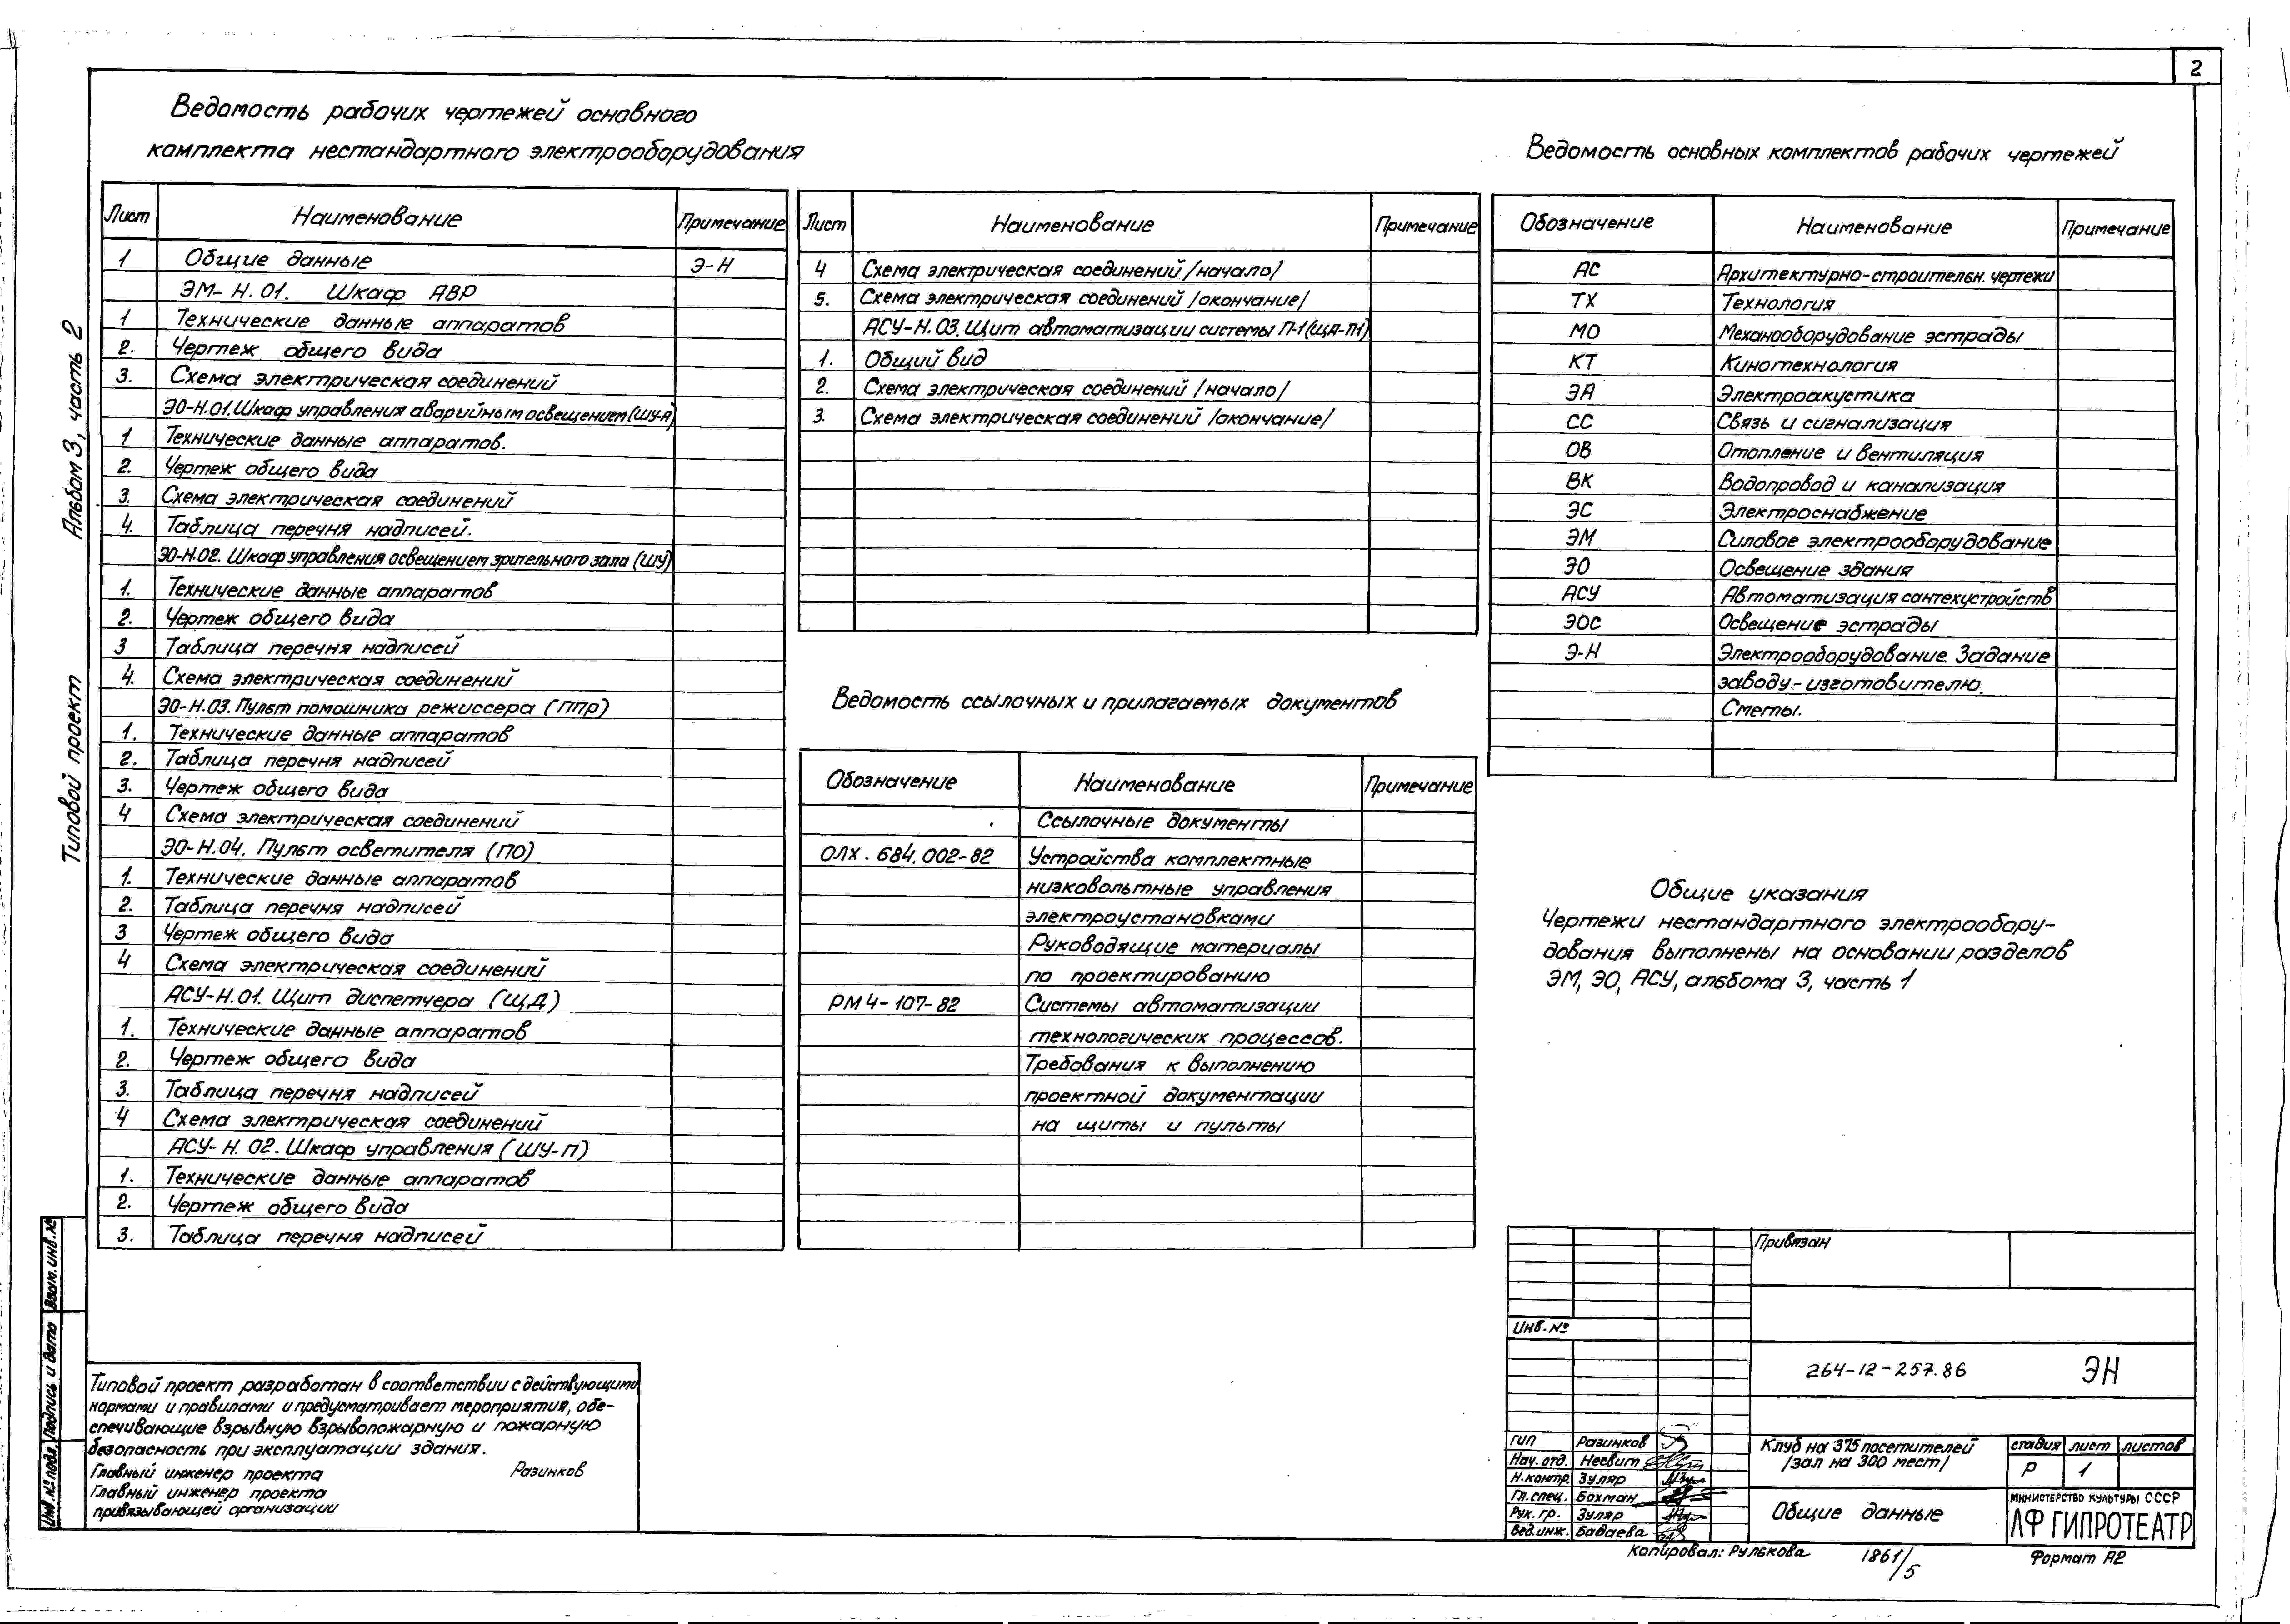 2
Ведомость рабочих чертежей основного
комплекта нестандартного электрооборудования
Лист Наименование Примечание
1 Общие данные Э-Н
ЭМ-Н.01. Шкаф АВР
1 Технические данные аппаратов
2. Чертеж общего вида
3. Схема электрическая соединений
ЭО-Н.01. Шкаф управления аварийным освещением (ШУ-А)
1 Технические данные аппаратов.
2. Чертеж общего вида
3. Схема электрическая соединений
4. Таблица перечня надписей.
ЭО-Н.02. Шкаф управления освещением зрительного зала (ШУ)
1. Технические данные аппаратов
2. Чертеж общего вида
3 Таблица перечня надписей
4. Схема электрическая соединений
ЭО-Н.03. Пульт помошника режиссера (ППР)
1. Технические данные аппаратов
2. Таблица перечня надписей
3. Чертеж общего вида
4 Схема электрическая соединений
ЭО-Н.04. Пульт осветителя (ПО)
1. Технические данные аппаратов
2. Таблица перечня надписей
3 Чертеж общего вида
4 Схема электрическая соединений
АСУ-Н.01. Щит диспетчера (ЩД)
1. Технические данные аппаратов
2. Чертеж общего вида
3. Таблица перечня надписей
4 Схема электрическая соединений
АСУ-Н.02. Шкаф управления (ШУ-П)
1. Технические данные аппаратов
2. Чертеж общего вида
3. Таблица перечня надписей
Лист Наименование Примечание
4 Схема электрическая соединений /начало/
5. Схема электрическая соединений /окончание/
АСУ-Н.03. Щит автоматизации системы П-1 (ЩА-П1)
1. Общий вид
2. Схема электрическая соединений /начало/
3. Схема электрическая соединений /окончание/
Ведомость ссылочных и прилагаемых документов
Обозначение Наименование Примечание
Ссылочные документы
ОЛХ.684.002-82 Устройства комплектные
низковольтные управления
электроустановками
Руководящие материалы
по проектированию
РМ4-107-82 Системы автоматизации
технологических процессов.
Требования к выполнению
проектной документации
на щиты и пульты
Ведомость основных комплектов рабочих чертежей
Обозначение Наименование Примечание
АС Архитектурно-строительн. чертежи
ТХ Технология
МО Механооборудование эстрады
КТ Кинотехнология
ЭА Электроакустика
СС Связь и сигнализация
ОВ Отопление и вентиляция
ВК Водопровод и канализация
ЭС Электроснабжение
ЭМ Силовое электрооборудование
ЭО Освещение здания
АСУ Автоматизация сантехустройств
ЭОС Освещение эстрады
Э-Н Электрооборудование. Задание
заводу-изготовителю.
Сметы.
Общие указания
Чертежи нестандартного электрообору-
дования выполнены на основании разделов
ЭМ, ЭО, АСУ, альбома 3, часть 1
Типовой проект Альбом 3, часть 2
Инв.№ подл. Подпись и дата Взам.инв.№
Типовой проект разработан в соответствии с действующими
нормами и правилами и предусматривает мероприятия, обе-
спечивающие взрывную взрывопожарную и пожарную
безопасность при эксплуатации здания.
Главный инженер проекта Разинков
Главный инженер проекта
привязывающей организации
Привязан
Инв.№
264-12-257.86 ЭН
ГИП Разинков
Нач. отд. Несвит
Н.контр. Зуляр
Гл.спец. Бохман
Рук. гр. Зуляр
Вед.инж. Бадаева
Клуб на 375 посетителей
/зал на 300 мест/
стадия лист листов
Р 1
Общие данные
МИНИСТЕРСТВО КУЛЬТУРЫ СССР
ЛФ ГИПРОТЕАТР
Копировал: Рулькова 1861/5 Формат А2